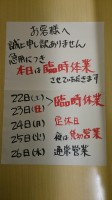 お客様へ
誠に申し訳ありません
急用につき
本日は臨時休業
させていただきます
22日(土)
23日(日)
臨時休業
24日(月) 定休日
25日(火) 夜は特別営業
26日(水) 通常営業